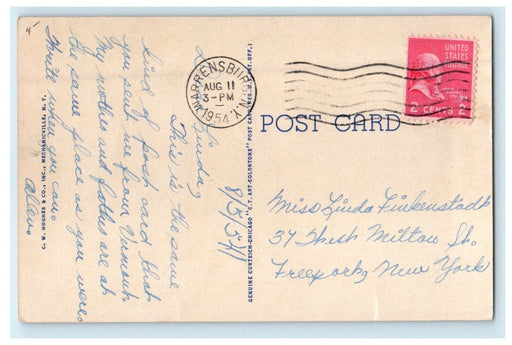 8/5/54
Dear Linda,
This is the same
kind of post card that
you sent me from Vermont
My mother and father are at
the same place as you were.
Write when you can.
Allen.
C. W. HUGHES & CO., INC., MECHANICVILLE, N. Y.
GENUINE CURTEICH-CHICAGO "C.T. ART-COLORTONE" POST CARD (REG. U. S. PAT. OFF.)
WARRENSBURG N.Y.
AUG 11
3-PM
1954
UNITED
STATES
POSTAGE
2 CENTS 2
POST CARD
Miss Linda Finkenstadt
37 West Milton St.
Freeport, New York